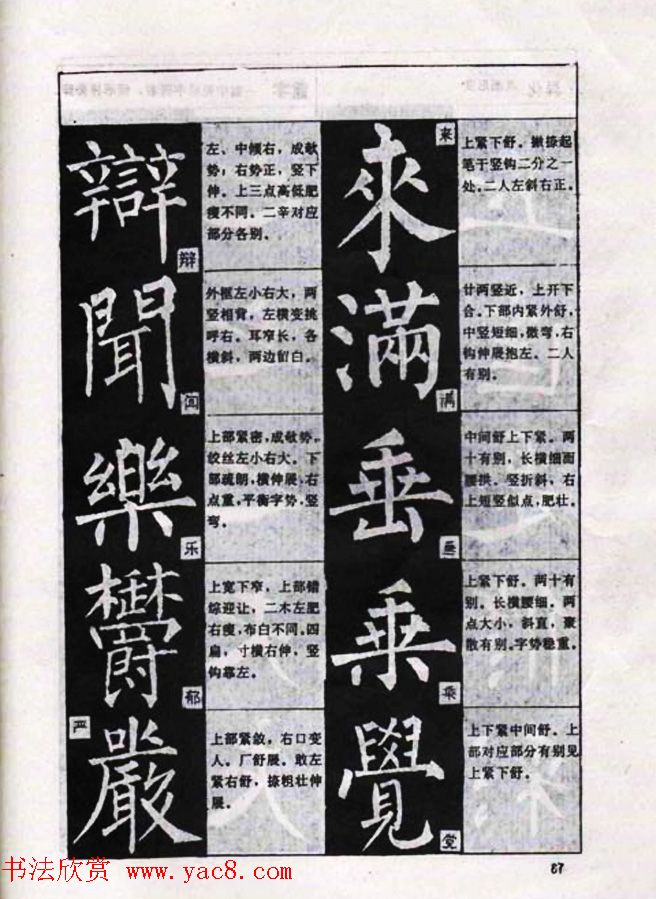 來
来
上紧下舒。撇捺起
笔于竖钩二分之一
处。二人左斜右正。
滿
满
廿两竖近，上开下
合。下部内紧外舒，
中竖短细，微弯，右
钩伸展抱左。二人
有别。
垂
垂
中间舒上下紧。两
十有别，长横细而
腰拱。竖折斜，右
上短竖似点，肥壮。
乘
乘
上紧下舒。两十有
别。长横腰细。两
点大小，斜直，聚
散有别。字势稳重。
覺
觉
上下紧中间舒。上
部对应部分有别见
上紧下舒。
辯
辩
左、中倾右，成欹
势；右势正，竖下
伸。上三点高低肥
瘦不同。二辛对应
部分各别。
聞
闻
外框左小右大，两
竖相背，左横变挑
呼右。耳窄长，各
横斜，两边留白。
樂
乐
上部紧密，成欹势。
绞丝左小右大。下
部疏朗，横伸展，右
点重。平衡字势，竖
弯。
欝
郁
上宽下窄，上部错
综迎让，二木左肥
右瘦，布白不同。四
扁，寸横右伸，竖
钩靠左。
嚴
严
上部紧敛，右口变
人。厂舒展。敢左
紧右舒，捺粗壮伸
展。
书法欣赏 www.yac8.com
67